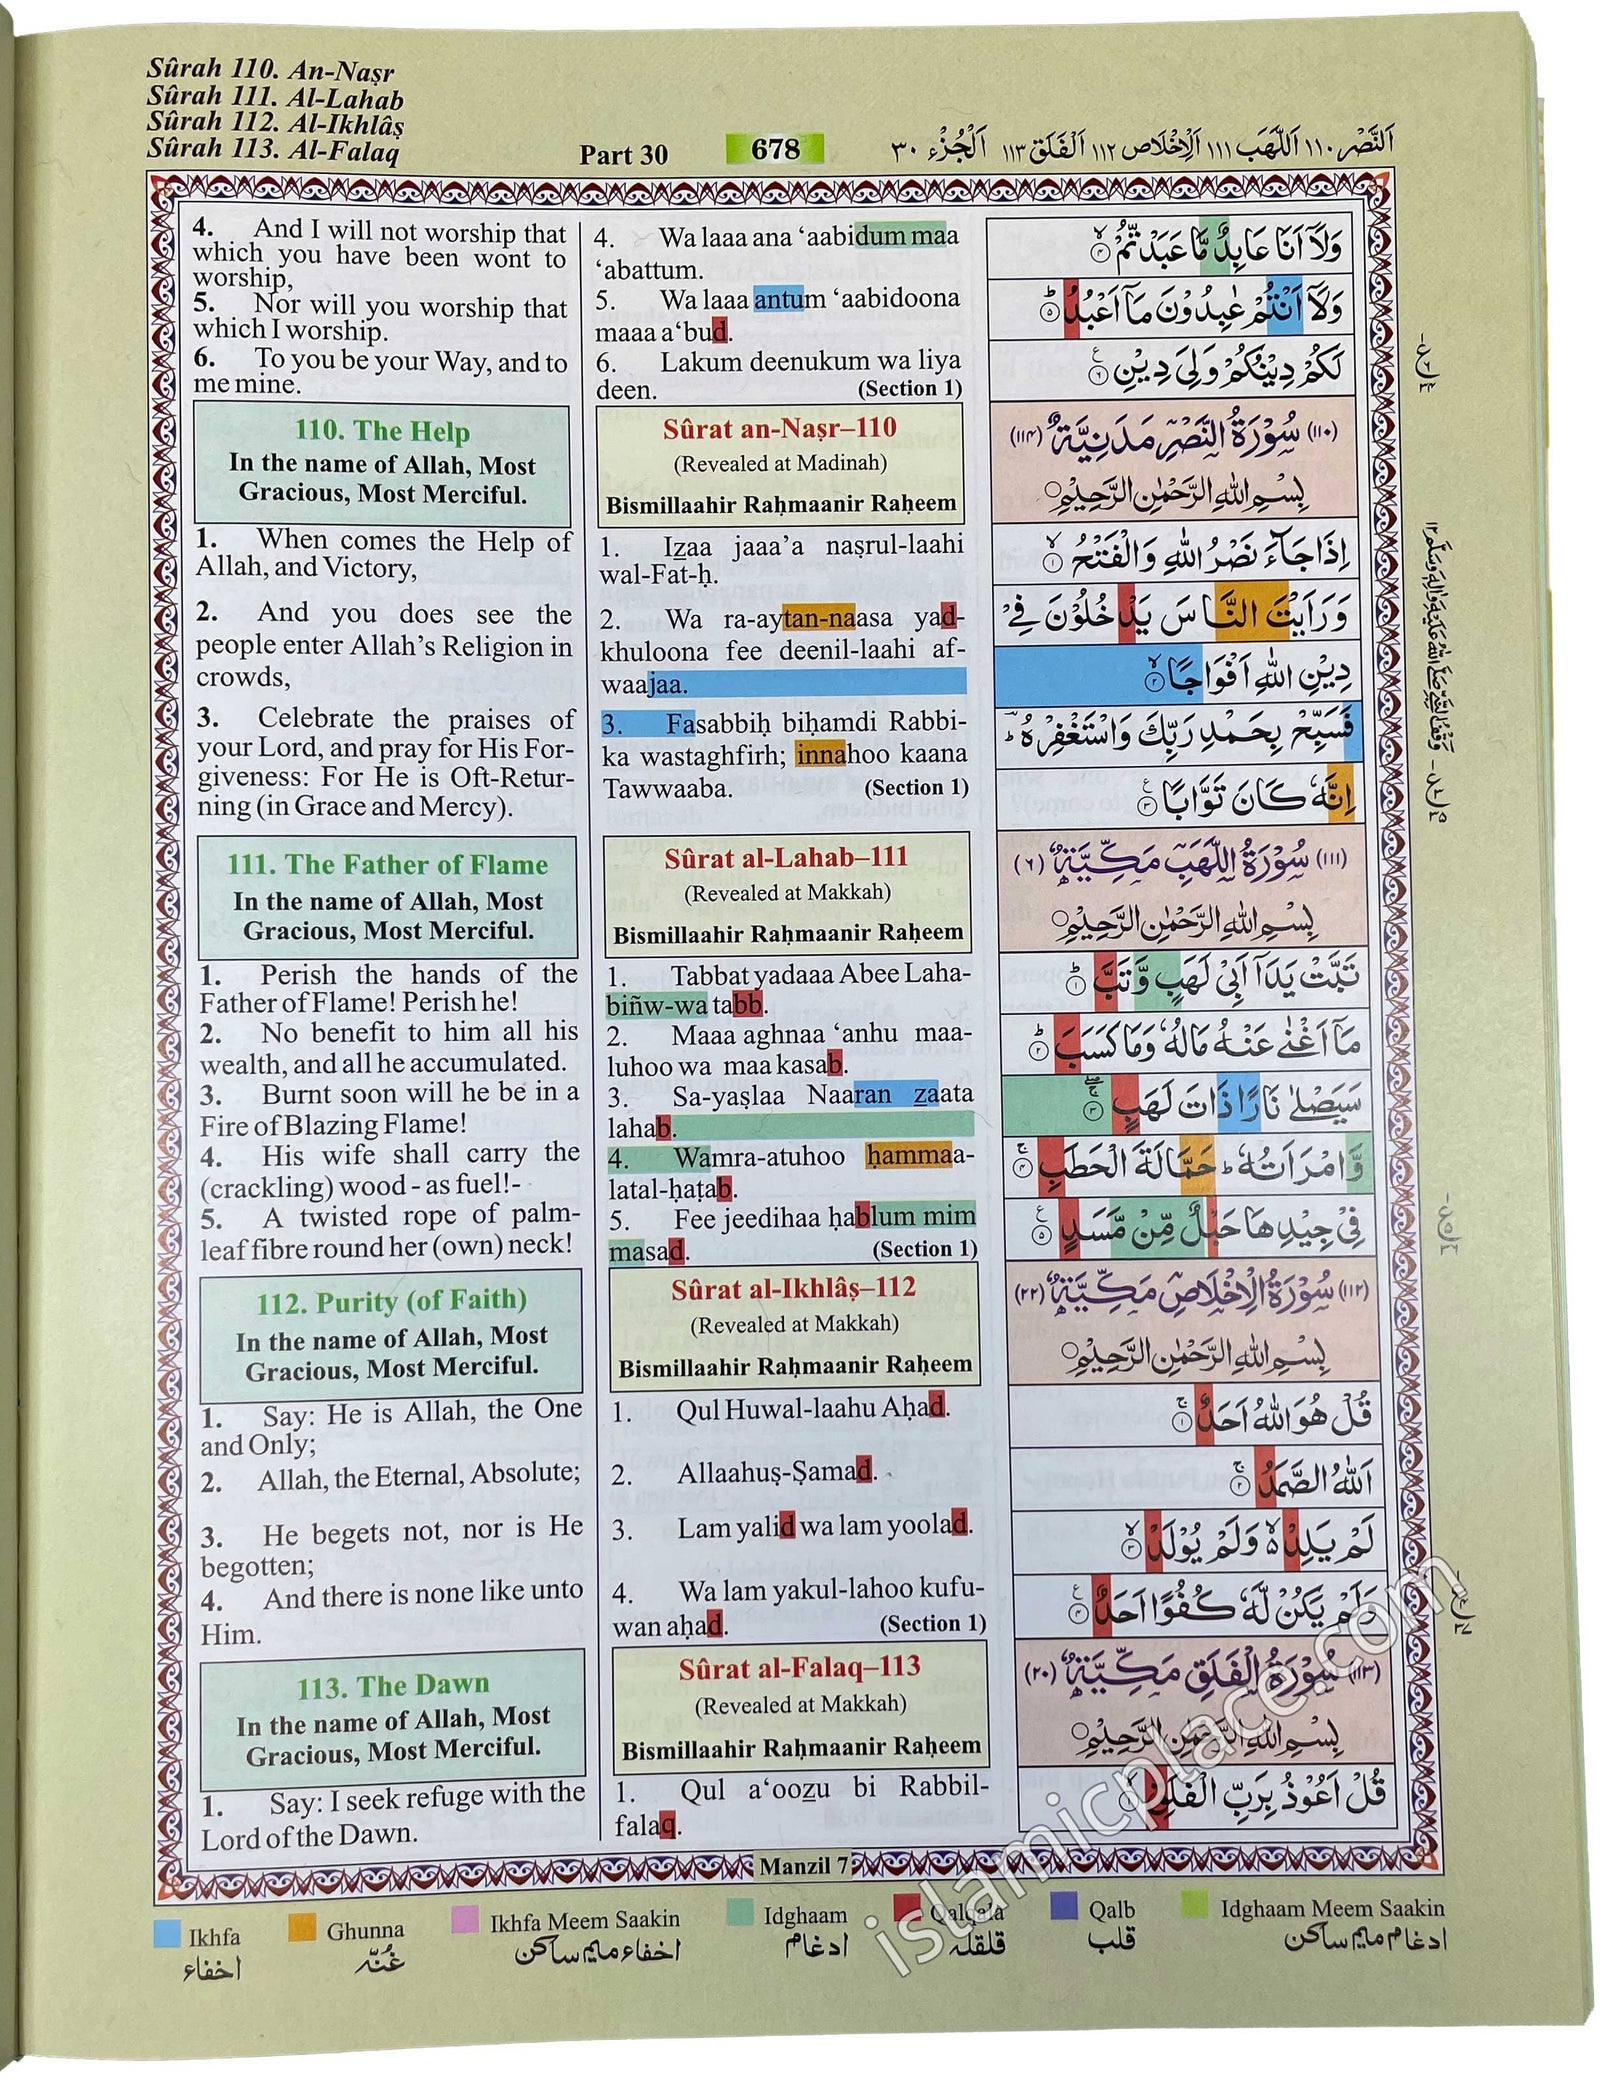 Sûrah 110. An-Naṣr
Sûrah 111. Al-Lahab
Sûrah 112. Al-Ikhlâṣ
Sûrah 113. Al-Falaq
Part 30
678
اَلنَّصْر ١١٠ اَللَّهَب ١١١ اَلْاِخْلَاص ١١٢ اَلْفَلَق ١١٣ اَلْجُزْء ٣٠
4. And I will not worship that
which you have been wont to
worship,
5. Nor will you worship that
which I worship.
6. To you be your Way, and to
me mine.
110. The Help
In the name of Allah, Most
Gracious, Most Merciful.
1. When comes the Help of
Allah, and Victory,
2. And you does see the
people enter Allah's Religion in
crowds,
3. Celebrate the praises of
your Lord, and pray for His For-
giveness: For He is Oft-Retur-
ning (in Grace and Mercy).
111. The Father of Flame
In the name of Allah, Most
Gracious, Most Merciful.
1. Perish the hands of the
Father of Flame! Perish he!
2. No benefit to him all his
wealth, and all he accumulated.
3. Burnt soon will he be in a
Fire of Blazing Flame!
4. His wife shall carry the
(crackling) wood - as fuel!-
5. A twisted rope of palm-
leaf fibre round her (own) neck!
112. Purity (of Faith)
In the name of Allah, Most
Gracious, Most Merciful.
1. Say: He is Allah, the One
and Only;
2. Allah, the Eternal, Absolute;
3. He begets not, nor is He
begotten;
4. And there is none like unto
Him.
113. The Dawn
In the name of Allah, Most
Gracious, Most Merciful.
1. Say: I seek refuge with the
Lord of the Dawn.
4. Wa laaa ana ‘aabidum maa
‘abattum.
5. Wa laaa antum ‘aabidoona
maaa a‘bud.
6. Lakum deenukum wa liya
deen. (Section 1)
Sûrat an-Naṣr–110
(Revealed at Madinah)
Bismillaahir Raḥmaanir Raḥeem
1. Izaa jaaa’a naṣrul-laahi
wal-Fat-ḥ.
2. Wa ra-aytan-naasa yad-
khuloona fee deenil-laahi af-
waajaa.
3. Fasabbiḥ biḥamdi Rabbi-
ka wastaghfirh; innahoo kaana
Tawwaaba. (Section 1)
Sûrat al-Lahab–111
(Revealed at Makkah)
Bismillaahir Raḥmaanir Raḥeem
1. Tabbat yadaaa Abee Laha-
biñw-wa tabb.
2. Maaa aghnaa ‘anhu maa-
luhoo wa maa kasab.
3. Sa-yaṣlaa Naaran zaata
lahab.
4. Wamra-atuhoo ḥammaa-
latal-ḥaṭab.
5. Fee jeedihaa ḥablum mim
masad. (Section 1)
Sûrat al-Ikhlâṣ–112
(Revealed at Makkah)
Bismillaahir Raḥmaanir Raḥeem
1. Qul Huwal-laahu Aḥad.
2. Allaahuṣ-Ṣamad.
3. Lam yalid wa lam yoolad.
4. Wa lam yakul-lahoo kufu-
wan aḥad. (Section 1)
Sûrat al-Falaq–113
(Revealed at Makkah)
Bismillaahir Raḥmaanir Raḥeem
1. Qul a‘oozu bi Rabbil-
falaq.
وَلَاۤ اَنَا عَابِدٌ مَّا عَبَدْتُّمْ ۙ۴
وَلَاۤ اَنْتُمْ عٰبِدُوْنَ مَاۤ اَعْبُدُ ؕ۵
لَكُمْ دِيْنُكُمْ وَلِيَ دِيْنِ ۶
(١١٠) سُوْرَةُ النَّصْرِ مَدَنِيَّةٌ (١١٤)
بِسْمِ اللّٰهِ الرَّحْمٰنِ الرَّحِيْمِ
اِذَا جَآءَ نَصْرُ اللّٰهِ وَالْفَتْحُ ۙ۱
وَرَاَيْتَ النَّاسَ يَدْخُلُوْنَ فِيْ
دِيْنِ اللّٰهِ اَفْوَاجًا ۙ۲
فَسَبِّحْ بِحَمْدِ رَبِّكَ وَاسْتَغْفِرْهُ ؕ
اِنَّهٗ كَانَ تَوَّابًا ۳
(١١١) سُوْرَةُ اللَّهَبِ مَكِّيَّةٌ (٦)
بِسْمِ اللّٰهِ الرَّحْمٰنِ الرَّحِيْمِ
تَبَّتْ يَدَاۤ اَبِيْ لَهَبٍ وَّتَبَّ ؕ۱
مَاۤ اَغْنٰى عَنْهُ مَالُهٗ وَمَا كَسَبَ ؕ۲
سَيَصْلٰى نَارًا ذَاتَ لَهَبٍ ۳
وَّامْرَاَتُهٗ ؕ حَمَّالَةَ الْحَطَبِ ۚ۴
فِيْ جِيْدِهَا حَبْلٌ مِّنْ مَّسَدٍ ۵
(١١٢) سُوْرَةُ الْاِخْلَاصِ مَكِّيَّةٌ (٢٢)
بِسْمِ اللّٰهِ الرَّحْمٰنِ الرَّحِيْمِ
قُلْ هُوَ اللّٰهُ اَحَدٌ ۚ۱
اَللّٰهُ الصَّمَدُ ۚ۲
لَمْ يَلِدْ ۙ وَلَمْ يُوْلَدْ ۙ۳
وَلَمْ يَكُنْ لَّهٗ كُفُوًا اَحَدٌ ۴
(١١٣) سُوْرَةُ الْفَلَقِ مَكِّيَّةٌ (٢٠)
بِسْمِ اللّٰهِ الرَّحْمٰنِ الرَّحِيْمِ
قُلْ اَعُوْذُ بِرَبِّ الْفَلَقِ ۱
Manzil 7
Ikhfa
اخفاء
Ghunna
غُنّہ
Ikhfa Meem Saakin
اخفاء میم ساکن
Idghaam
ادغام
Qalqala
قلقلہ
Qalb
قلب
Idghaam Meem Saakin
ادغام میم ساکن
islamicplace.com